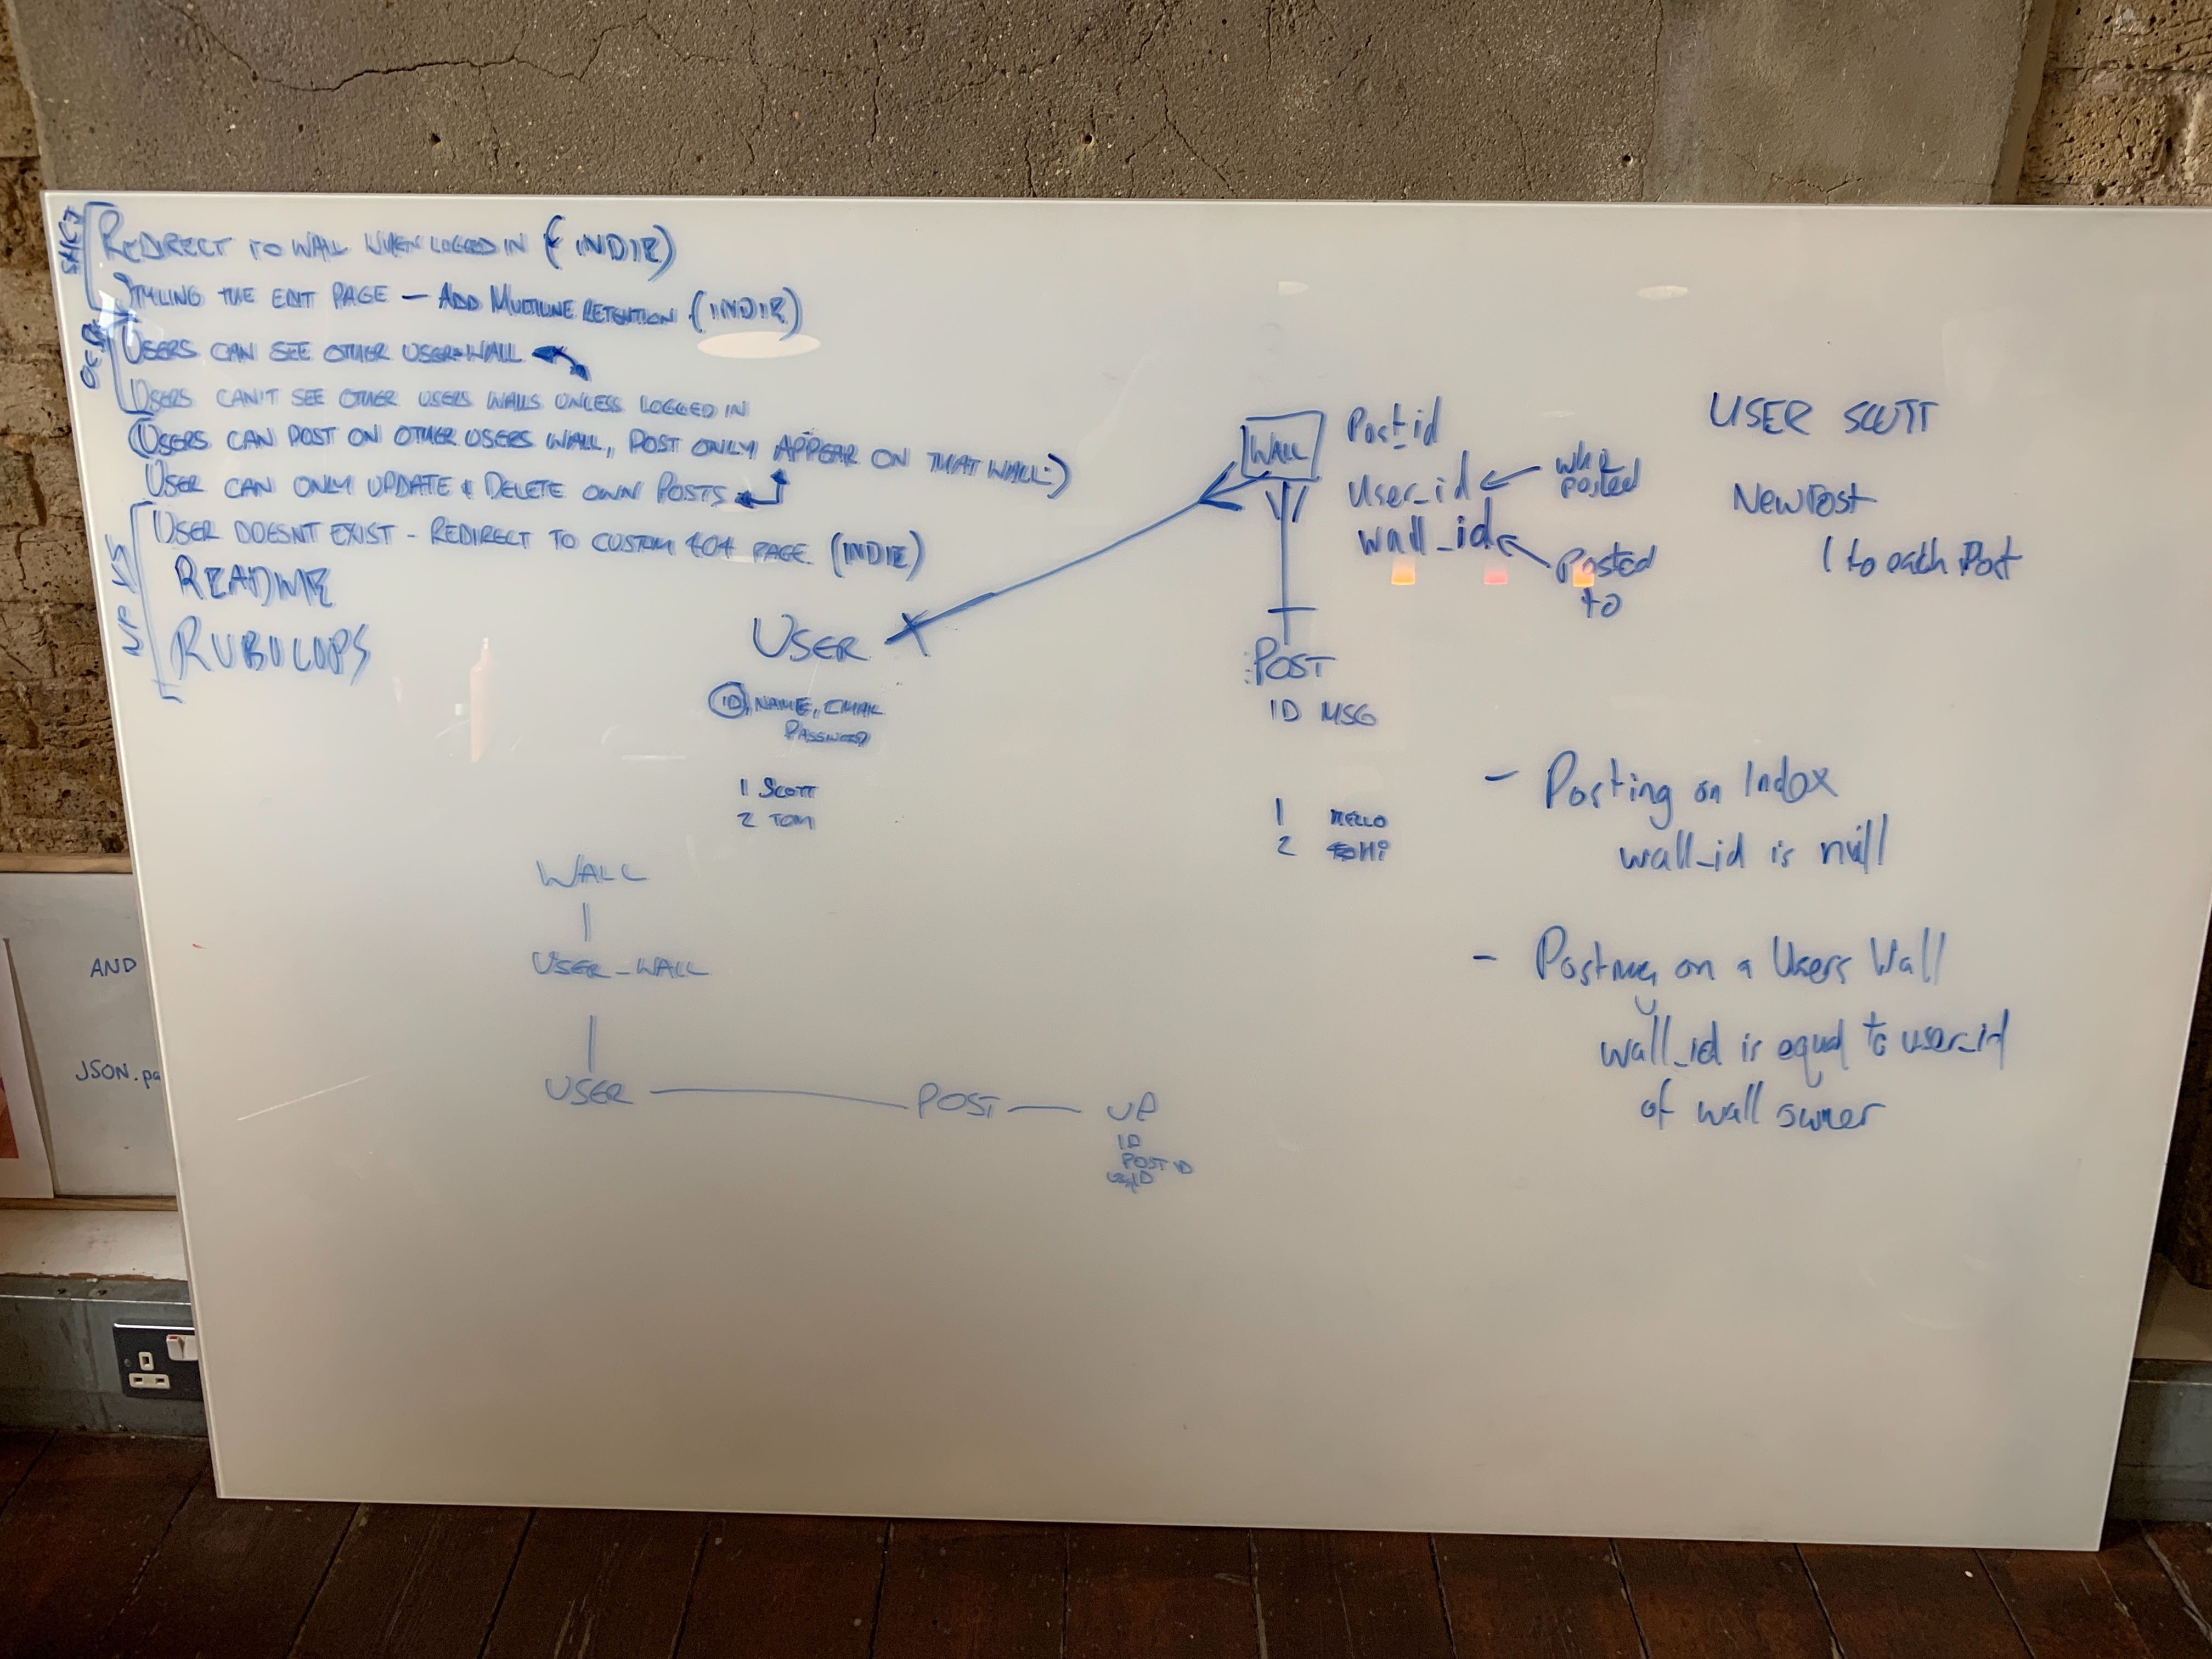 REDIRECT TO WALL WHEN LOGGED IN (INDIR)
STYLING THE EDIT PAGE — ADD MULTILINE RETENTION (INDIR)
USERS CAN SEE OTHER USER-WALL
USERS CAN'T SEE OTHER USERS WALLS UNLESS LOGGED IN
(USERS CAN POST ON OTHER USERS WALL, POST ONLY APPEAR ON THAT WALL:)
USER CAN ONLY UPDATE & DELETE OWN POSTS
USER DOESNT EXIST - REDIRECT TO CUSTOM 404 PAGE (INDIR)
README
RUBOCOPS
WALL
Post_id
User_id
who
posted
wall_id
Posted
to
USER SCOTT
New Post
1 to each Post
USER
ID, NAME, EMAIL
PASSWORD
1 SCOTT
2 TOM
POST
ID MSG
1 HELLO
2 Hi
- Posting on Index
wall_id is null
- Posting on a Users Wall
wall_id is equal to user_id
of wall owner
WALL
USER-WALL
USER
POST
UP
ID
POST ID
AND
JSON.pa